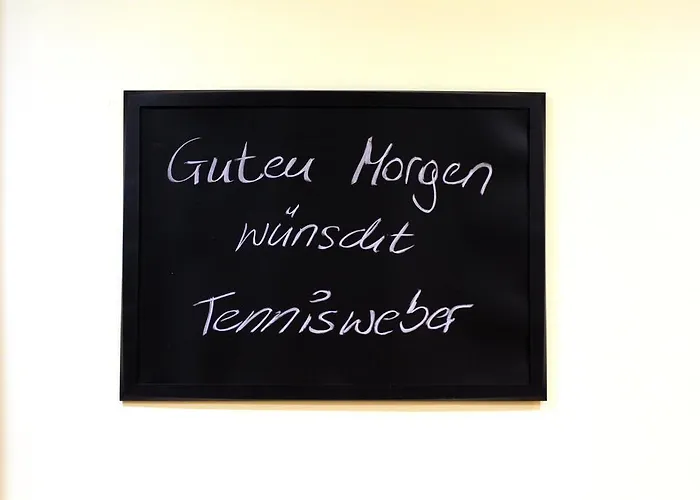 Guten Morgen
wünscht
Tennisweber